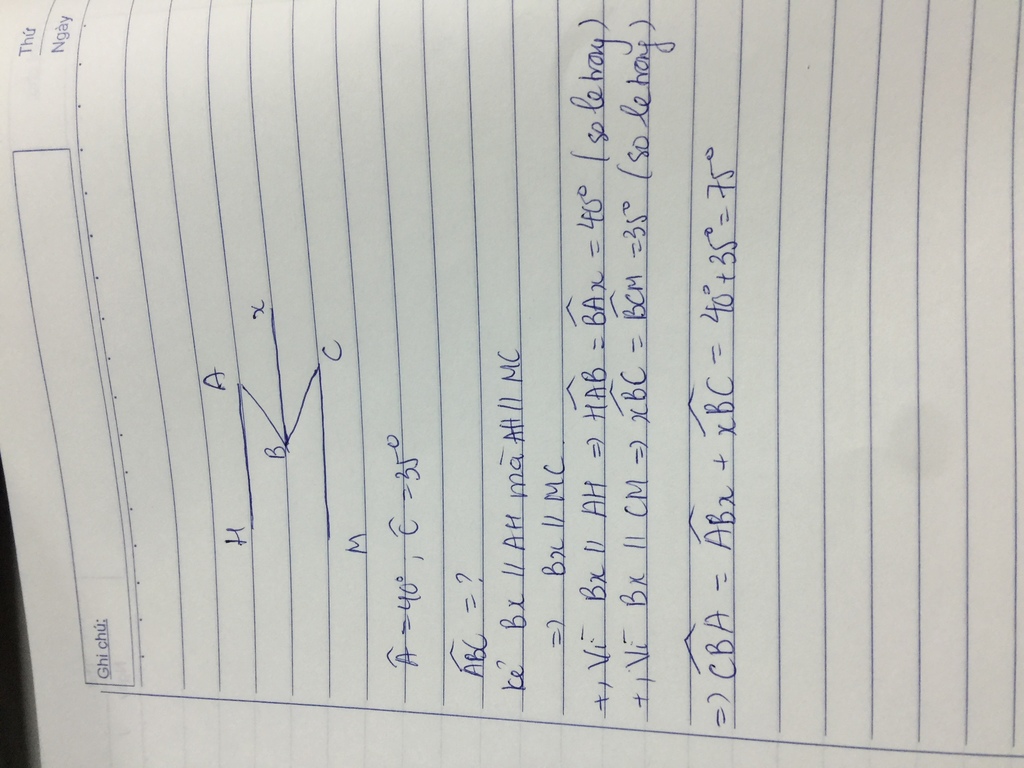 Thứ
Ngày
Ghi chú:
H
A
B
x
C
M
Â = 40°, Ĉ = 35°
\widehat{ABC} = ?
kẻ Bx // AH mà AH // MC
=> Bx // MC
+, Vì Bx // AH => \widehat{HAB} = \widehat{BAx} = 40° (so le trong)
+, Vì Bx // CM => \widehat{xBC} = \widehat{BCM} = 35° (so le trong)
=> \widehat{CBA} = \widehat{ABx} + \widehat{xBC} = 40° + 35° = 75°